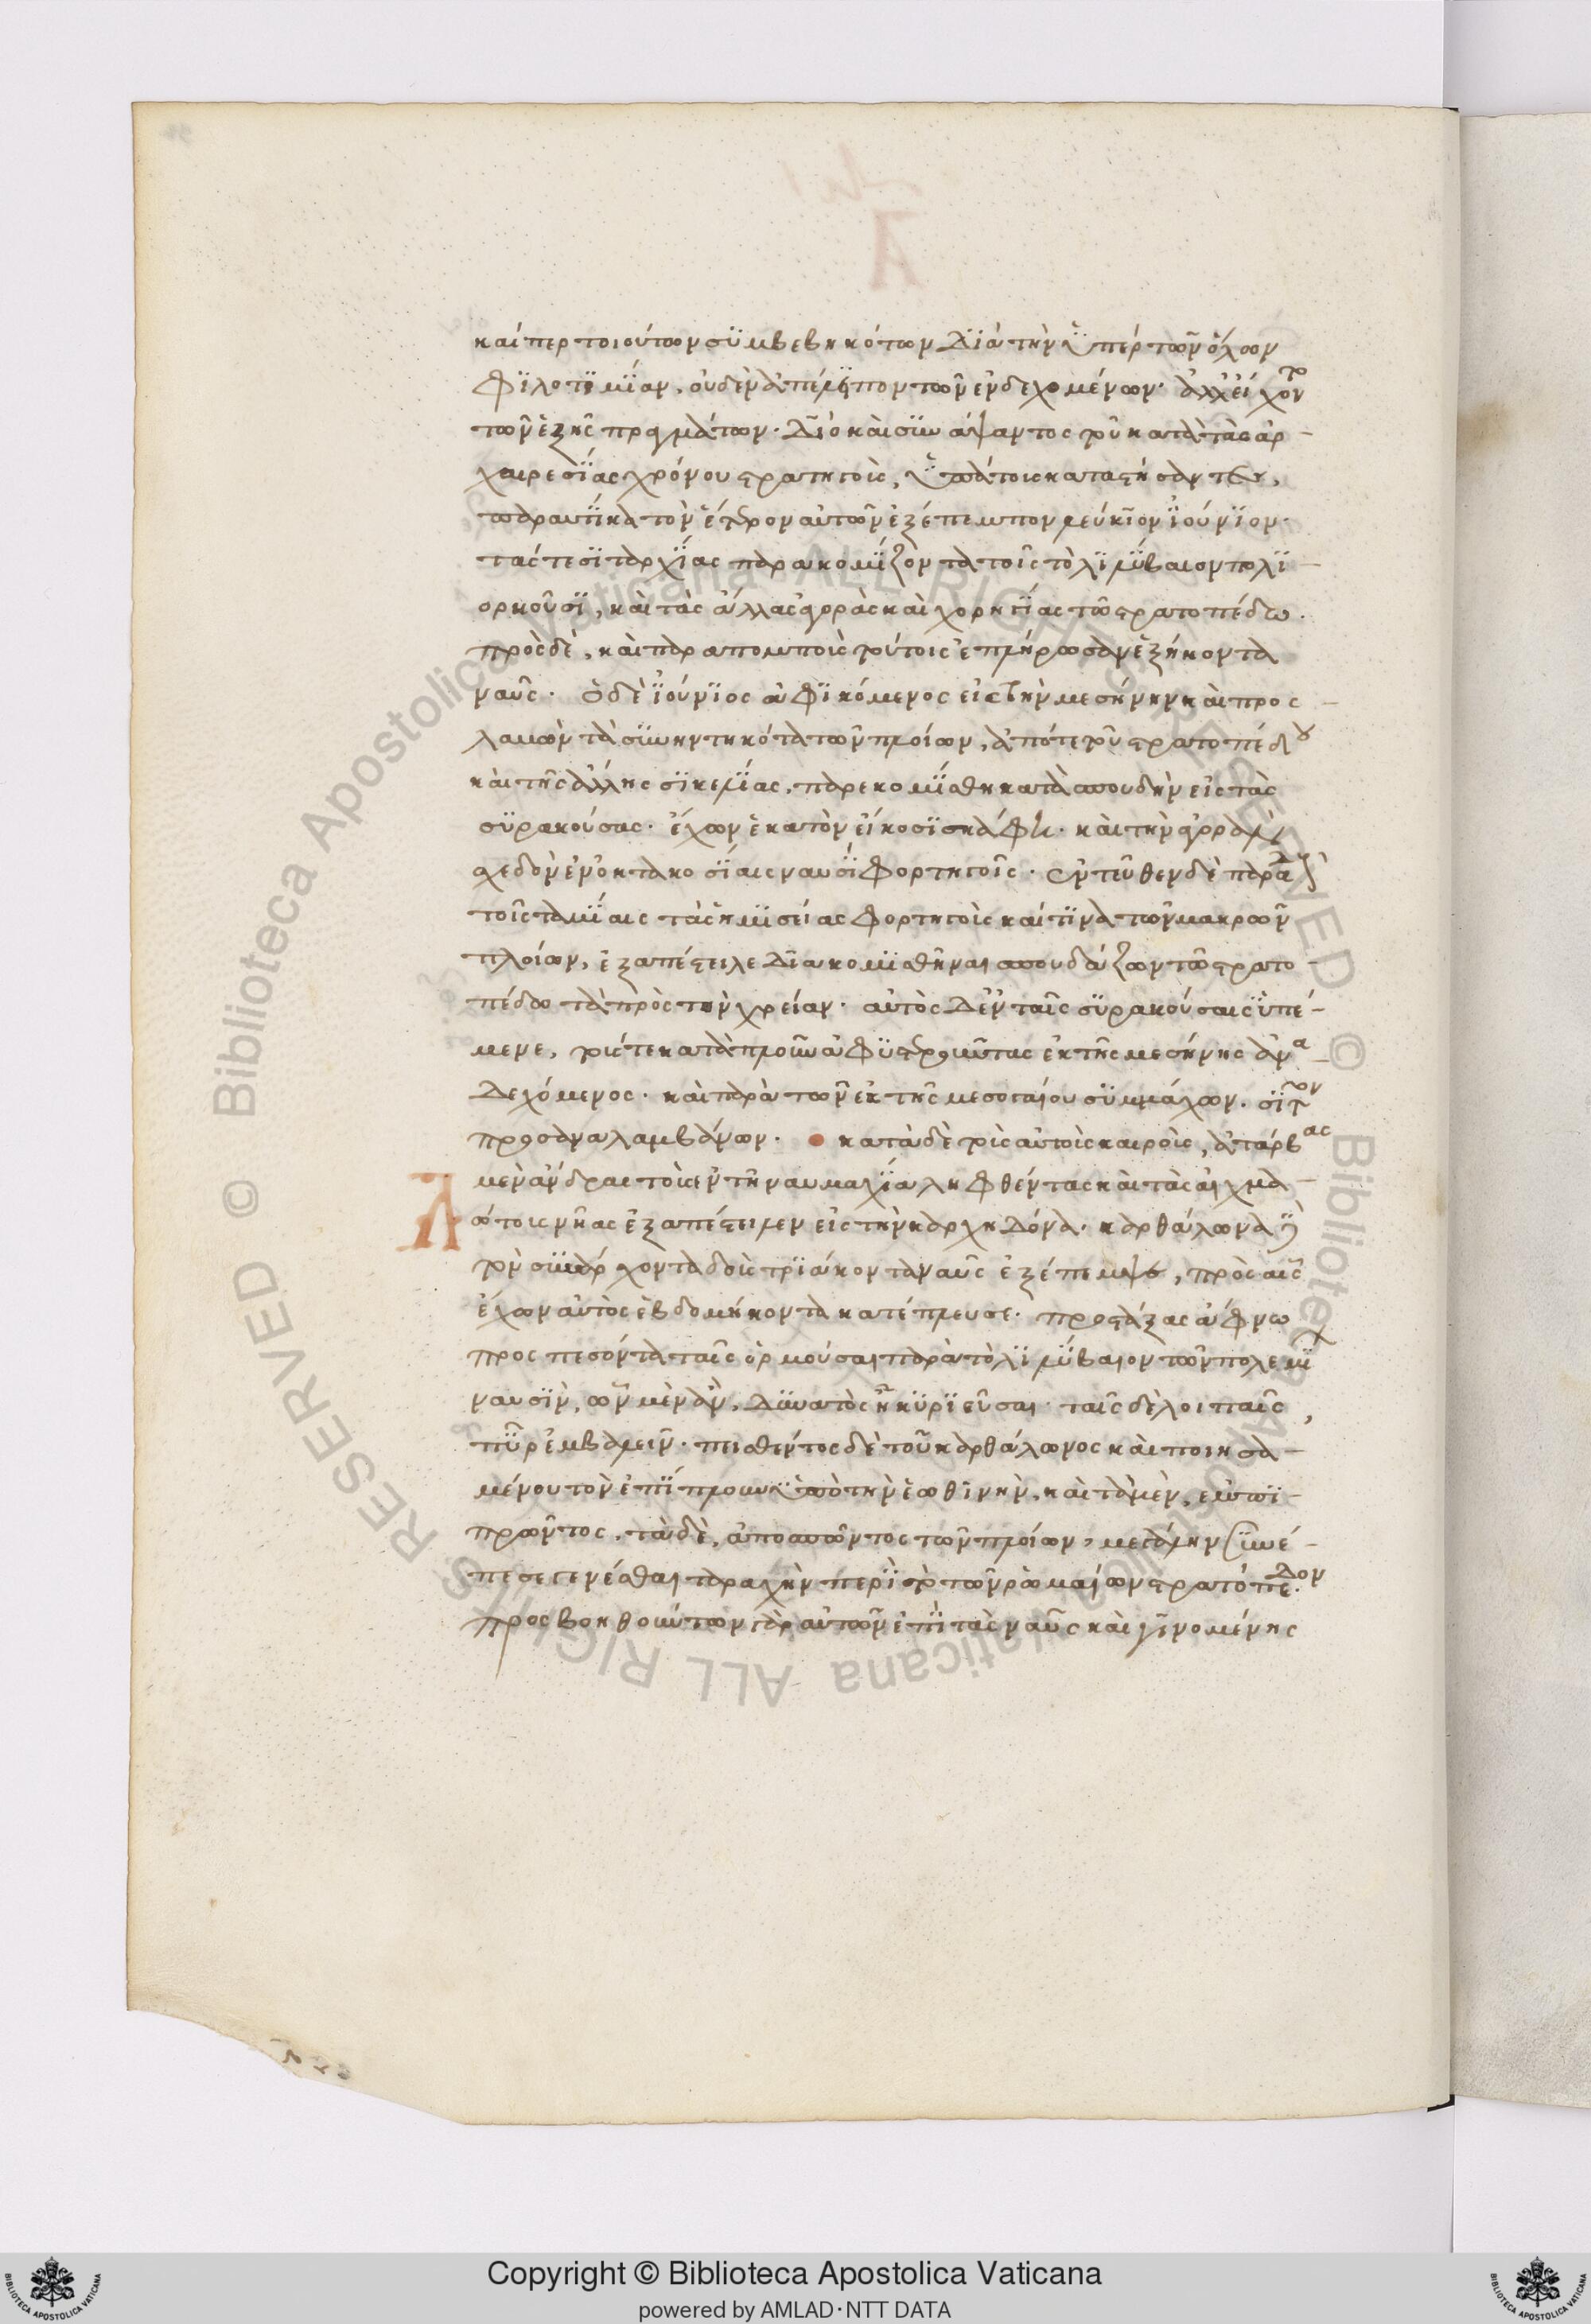 καίπερ τοιούτων συμβεβηκότων διὰ τὴν ὑπὲρ τῶν ὅλων
φιλοτιμίαν, οὐδὲν ἀπέλιπον τῶν ἐνδεχομένων· ἀλλ' εἴχοντο
τῶν ἑξῆς πραγμάτων. διὸ καὶ συνάψαντος τοῦ κατὰ τὰς ἀρ-
χαιρεσίας χρόνου στρατηγοὺς, ὑπάτους καταστήσαντες,
παραυτίκα τὸν ἕτερον αὐτῶν ἐξέπεμπον λεύκιον ἰούνιον·
τάς τε σιταρχίας παρακομίζοντα τοῖς τὸ λιλύβαιον πολι-
ορκοῦσι, καὶ τὰς ἄλλας ἀγορὰς καὶ χορηγίας τῶ στρατοπέδω.
πρὸς δὲ, καὶ παραπομποὺς τούτοις ἐπλήρωσαν ἑξήκοντα
ναῦς. ὁ δὲ ἰούνιος ἀφικόμενος εἰς τὴν μεσήνην καὶ προσ-
λαβὼν τὰ συνηντηκότα τῶν πλοίων, ἀπό τε τοῦ στρατοπέδου
καὶ τῆς ἄλλης σικελίας, παρεκομίσθη κατὰ σπουδὴν εἰς τὰς
συρακούσας· ἔχων ἑκατὸν εἴκοσι σκάφη· καὶ τὴν ἀγορὰν
σχεδὸν ἐν ὀκτακοσίαις ναυσὶ φορτηγοῖς. ἐντεῦθεν δὲ παραδοὺς
τοῖς ταμίαις τὰς ἡμισείας φορτηγοὺς καί τινα τῶν μακρῶν
πλοίων, ἐξαπέστειλε διακομισθῆναι σπουδάζων τῶ στρατο-
πέδω τὰ πρὸς τὴν χρείαν· αὐτὸς δ' ἐν ταῖς συρακούσαις ὑπέ-
μενε, τούς τε κατὰ πλοῦν ἀφυστεροῦντας ἐκ τῆς μεσήνης ἀνα-
δεχόμενος· καὶ παρὰ τῶν ἐκ τῆς μεσογαίου συμμάχων. σῖτον
προσαναλαμβάνων. κατὰ δὲ τοὺς αὐτοὺς καιροὺς, ἀτάρβας
μὲν ἄνδρας τοὺς ἐν τῆ ναυμαχία ληφθέντας καὶ τὰς αἰχμα-
λώτους νῆας ἐξαπέστειλεν εἰς τὴν καρχηδόνα. καρθάλωνα δὲ
τὸν συνάρχοντα δοὺς τριάκοντα ναῦς ἐξέπεμψε, πρὸς αἷς
ἔχων αὐτὸς ἑβδομήκοντα κατέπλευσε. προστάξας ἄφνω
προσπεσόντα ταῖς ὁρμούσαις παρὰ τὸ λιλύβαιον τῶν πολεμίων
ναυσὶν, ὧν μὲν ἂν, δυνατὸς ἦ κυριεῦσαι· ταῖς δὲ λοιπαῖς,
πῦρ ἐμβαλεῖν. πεισθέντος δὲ τοῦ καρθάλωνος καὶ ποιησα-
μένου τὸν ἐπίπλουν ὑπὸ τὴν ἑωθινὴν, καὶ τὰ μὲν, ἐμπι-
πρῶντος, τὰ δὲ, ἀποσπῶντος τῶν πλοίων, μεγάλην συνέ-
πεσε γενέσθαι ταραχὴν περὶ τὸ τῶν ῥωμαίων στρατόπεδον.
προσβοηθούντων γὰρ αὐτῶν ἐπὶ τὰς ναῦς καὶ γινομένης
Copyright © Biblioteca Apostolica Vaticana
powered by AMLAD·NTT DATA